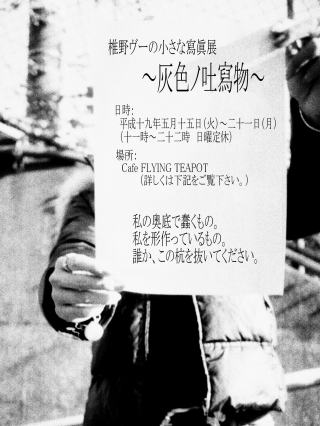 椎野ヴーの小さな寫眞展
～灰色ノ吐寫物～
日時：
平成十九年五月十五日（火）～二十一日（月）
（十一時～二十二時　日曜定休）
場所：
Cafe FLYING TEAPOT
（詳しくは下記をご覧下さい。）
私の奥底で蠢くもの。
私を形作っているもの。
誰か、この杭を抜いてください。